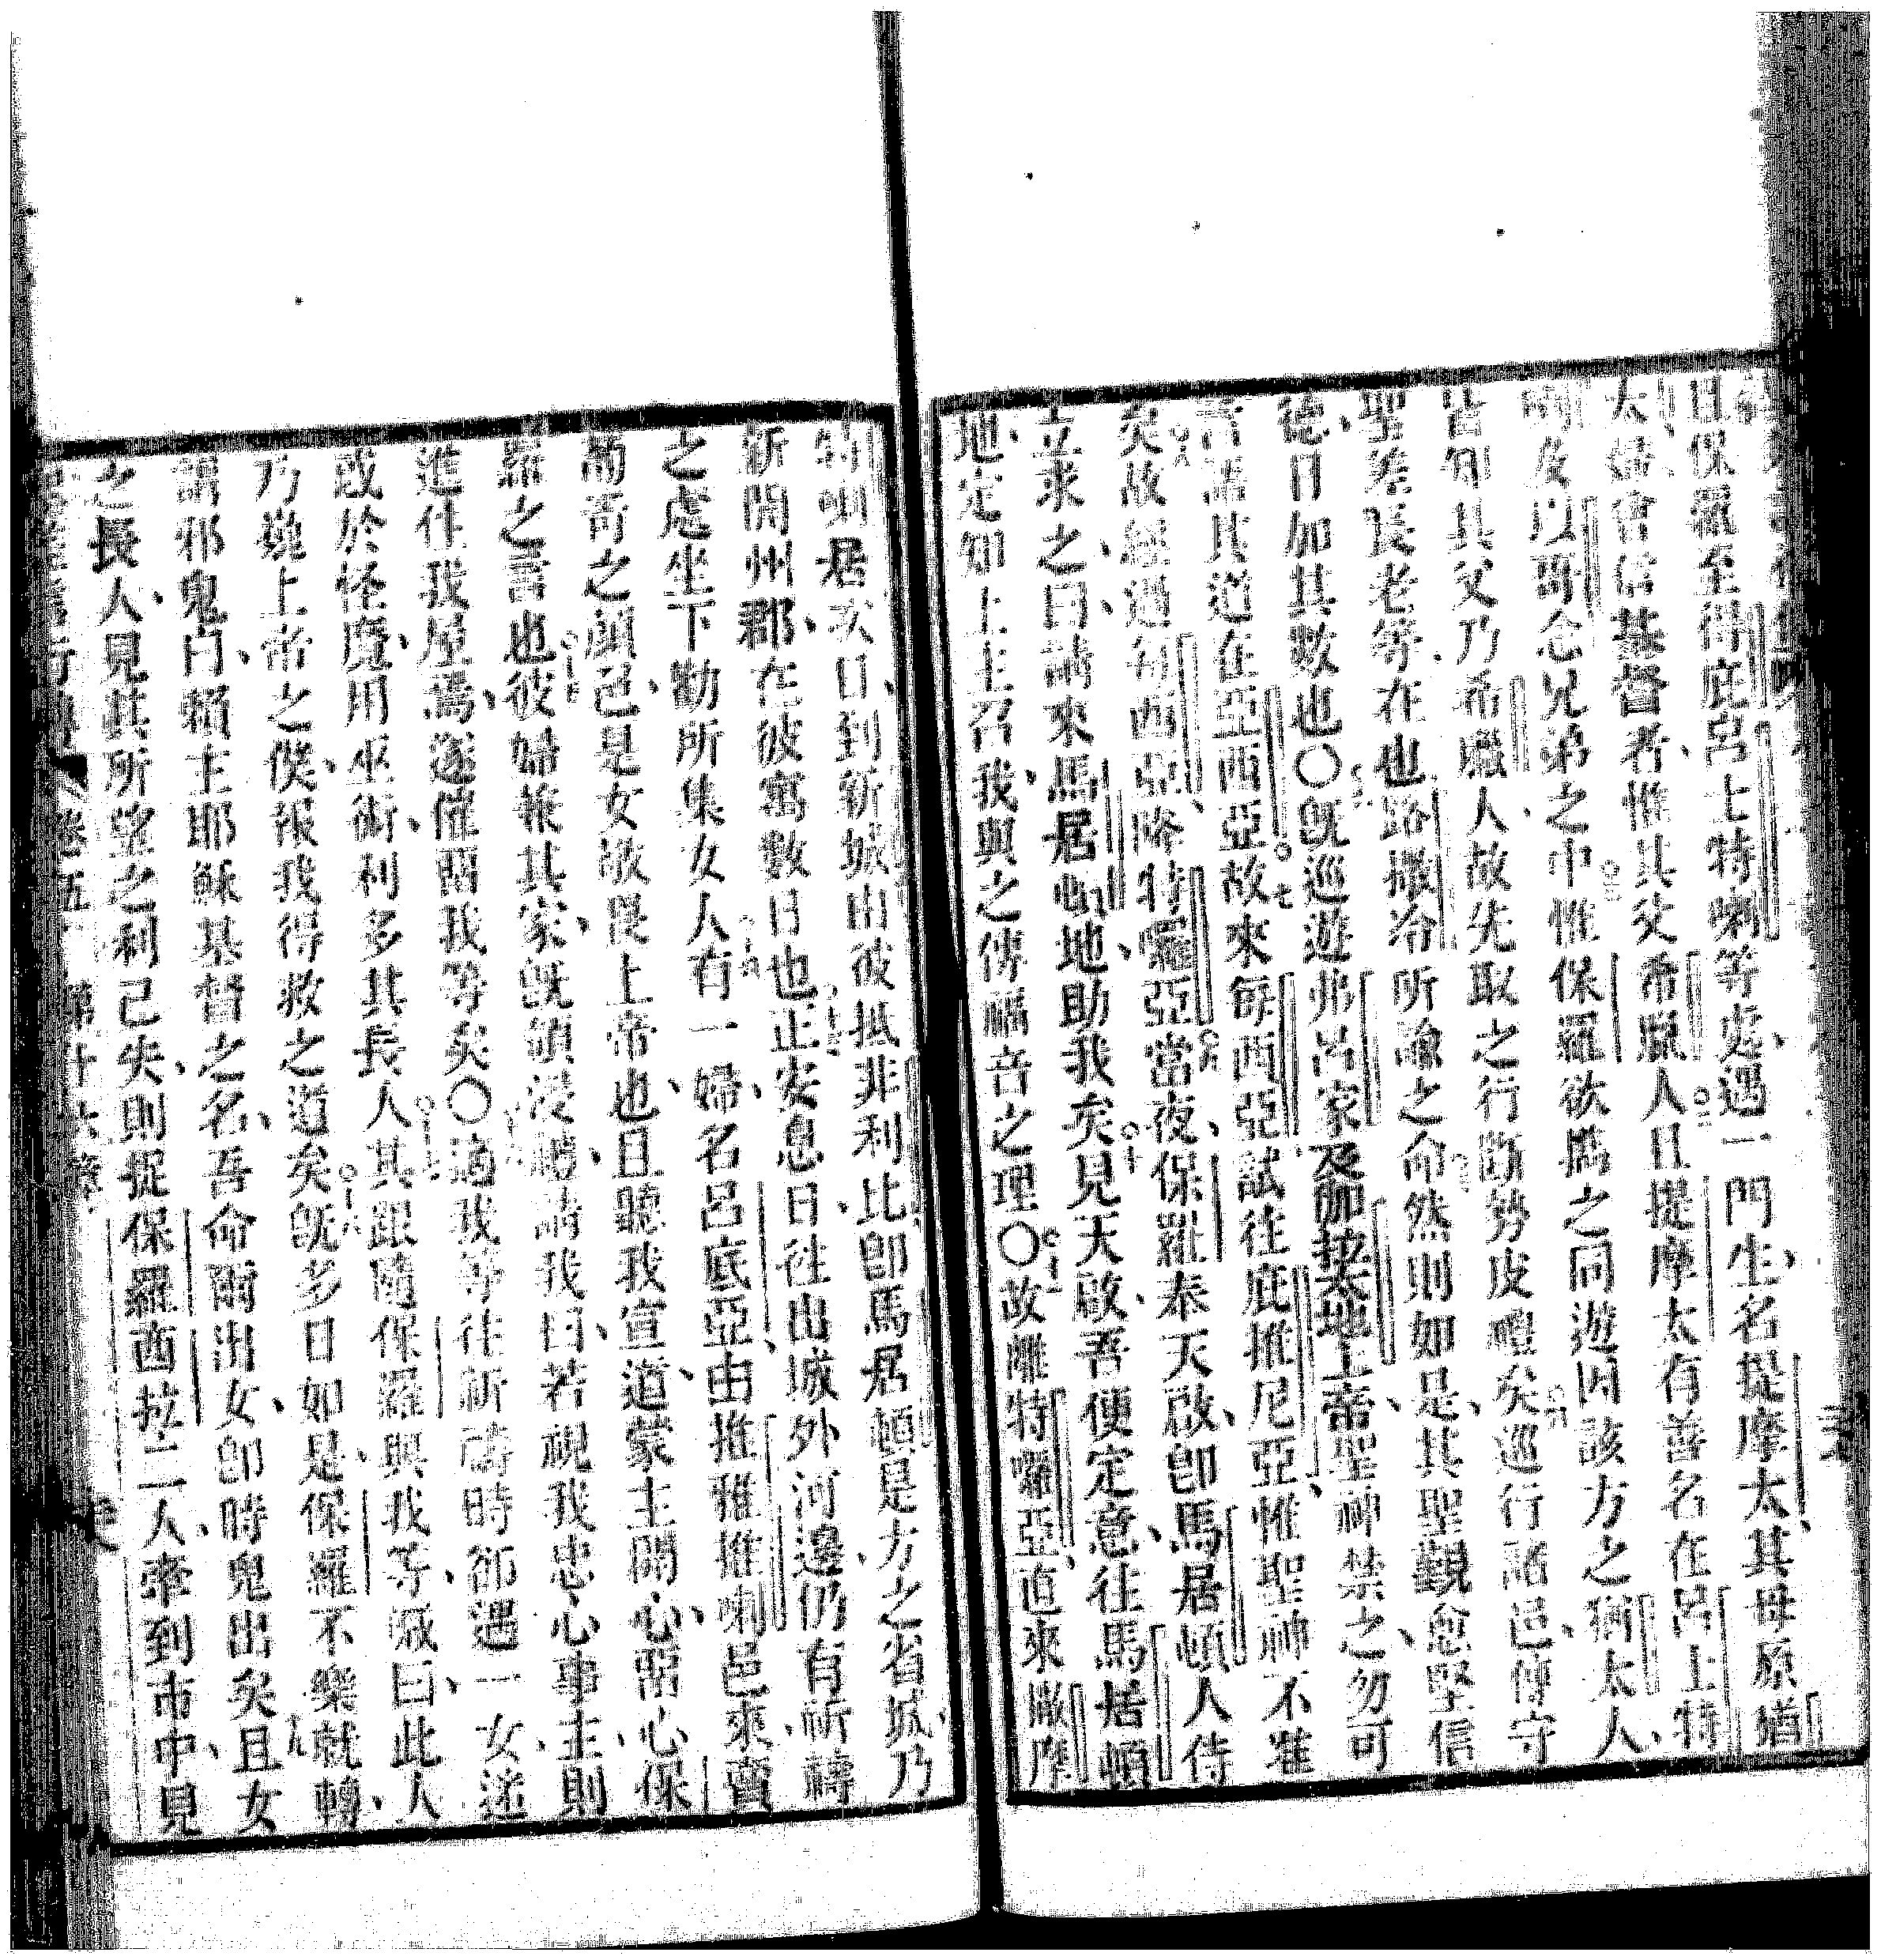 且保羅至得庇呂士特喇等處遇一門生名提摩太其母原猶
太婦會信基督者惟其父希臘人且提摩太有善名在呂士特
喇及以哥念兄弟之中惟保羅欲攜之同遊因該方之猶太人
皆知其父乃希臘人故先取之行斷勢皮禮矣巡行諸邑傳守
聖差長老等在也路撒冷所諭之命然則如是其聖觀愈堅信
德日加其數也〇既巡遊弗呂家及加拉太地上帝聖神禁之勿可
言諸其道在亞西亞故來每西亞試往庇推尼亞惟聖神不准
矣故經過每西亞降特囉亞當夜保羅奉天啟卽馬居頓人侍
立求之曰請來馬居頓地助我矣見天啟吾便定意往馬居頓
地定知上主召我與之傳福音之理〇故離特囉亞直來撒摩
特喇居次日到新城由彼抵非利比卽馬居頓是方之省城乃
新開州郡在彼寓數日也正安息日往出城外河邊仍有祈禱
之處坐下勸所集女人有一婦名呂底亞由推雅推喇邑來賣
之顏己是女敬畏上帝也且聽我宣道蒙主開心留心保
羅之言也彼婦兼其家既領浸禮請我曰若視我忠心事主則
進住我屋焉遂催留我等矣〇適我等往祈禱時卻遇一女逆
或於怪魔用巫術利多其長人其跟隨保羅與我等喊曰此人
乃巍上帝之僕報我得救之道矣旣多日如是保羅不樂就轉
謂邪鬼曰賴主耶穌基督之名吾命爾出女卽時鬼出矣且女
之長人見其所望之利己失則捉保羅西拉二人牽到市中見